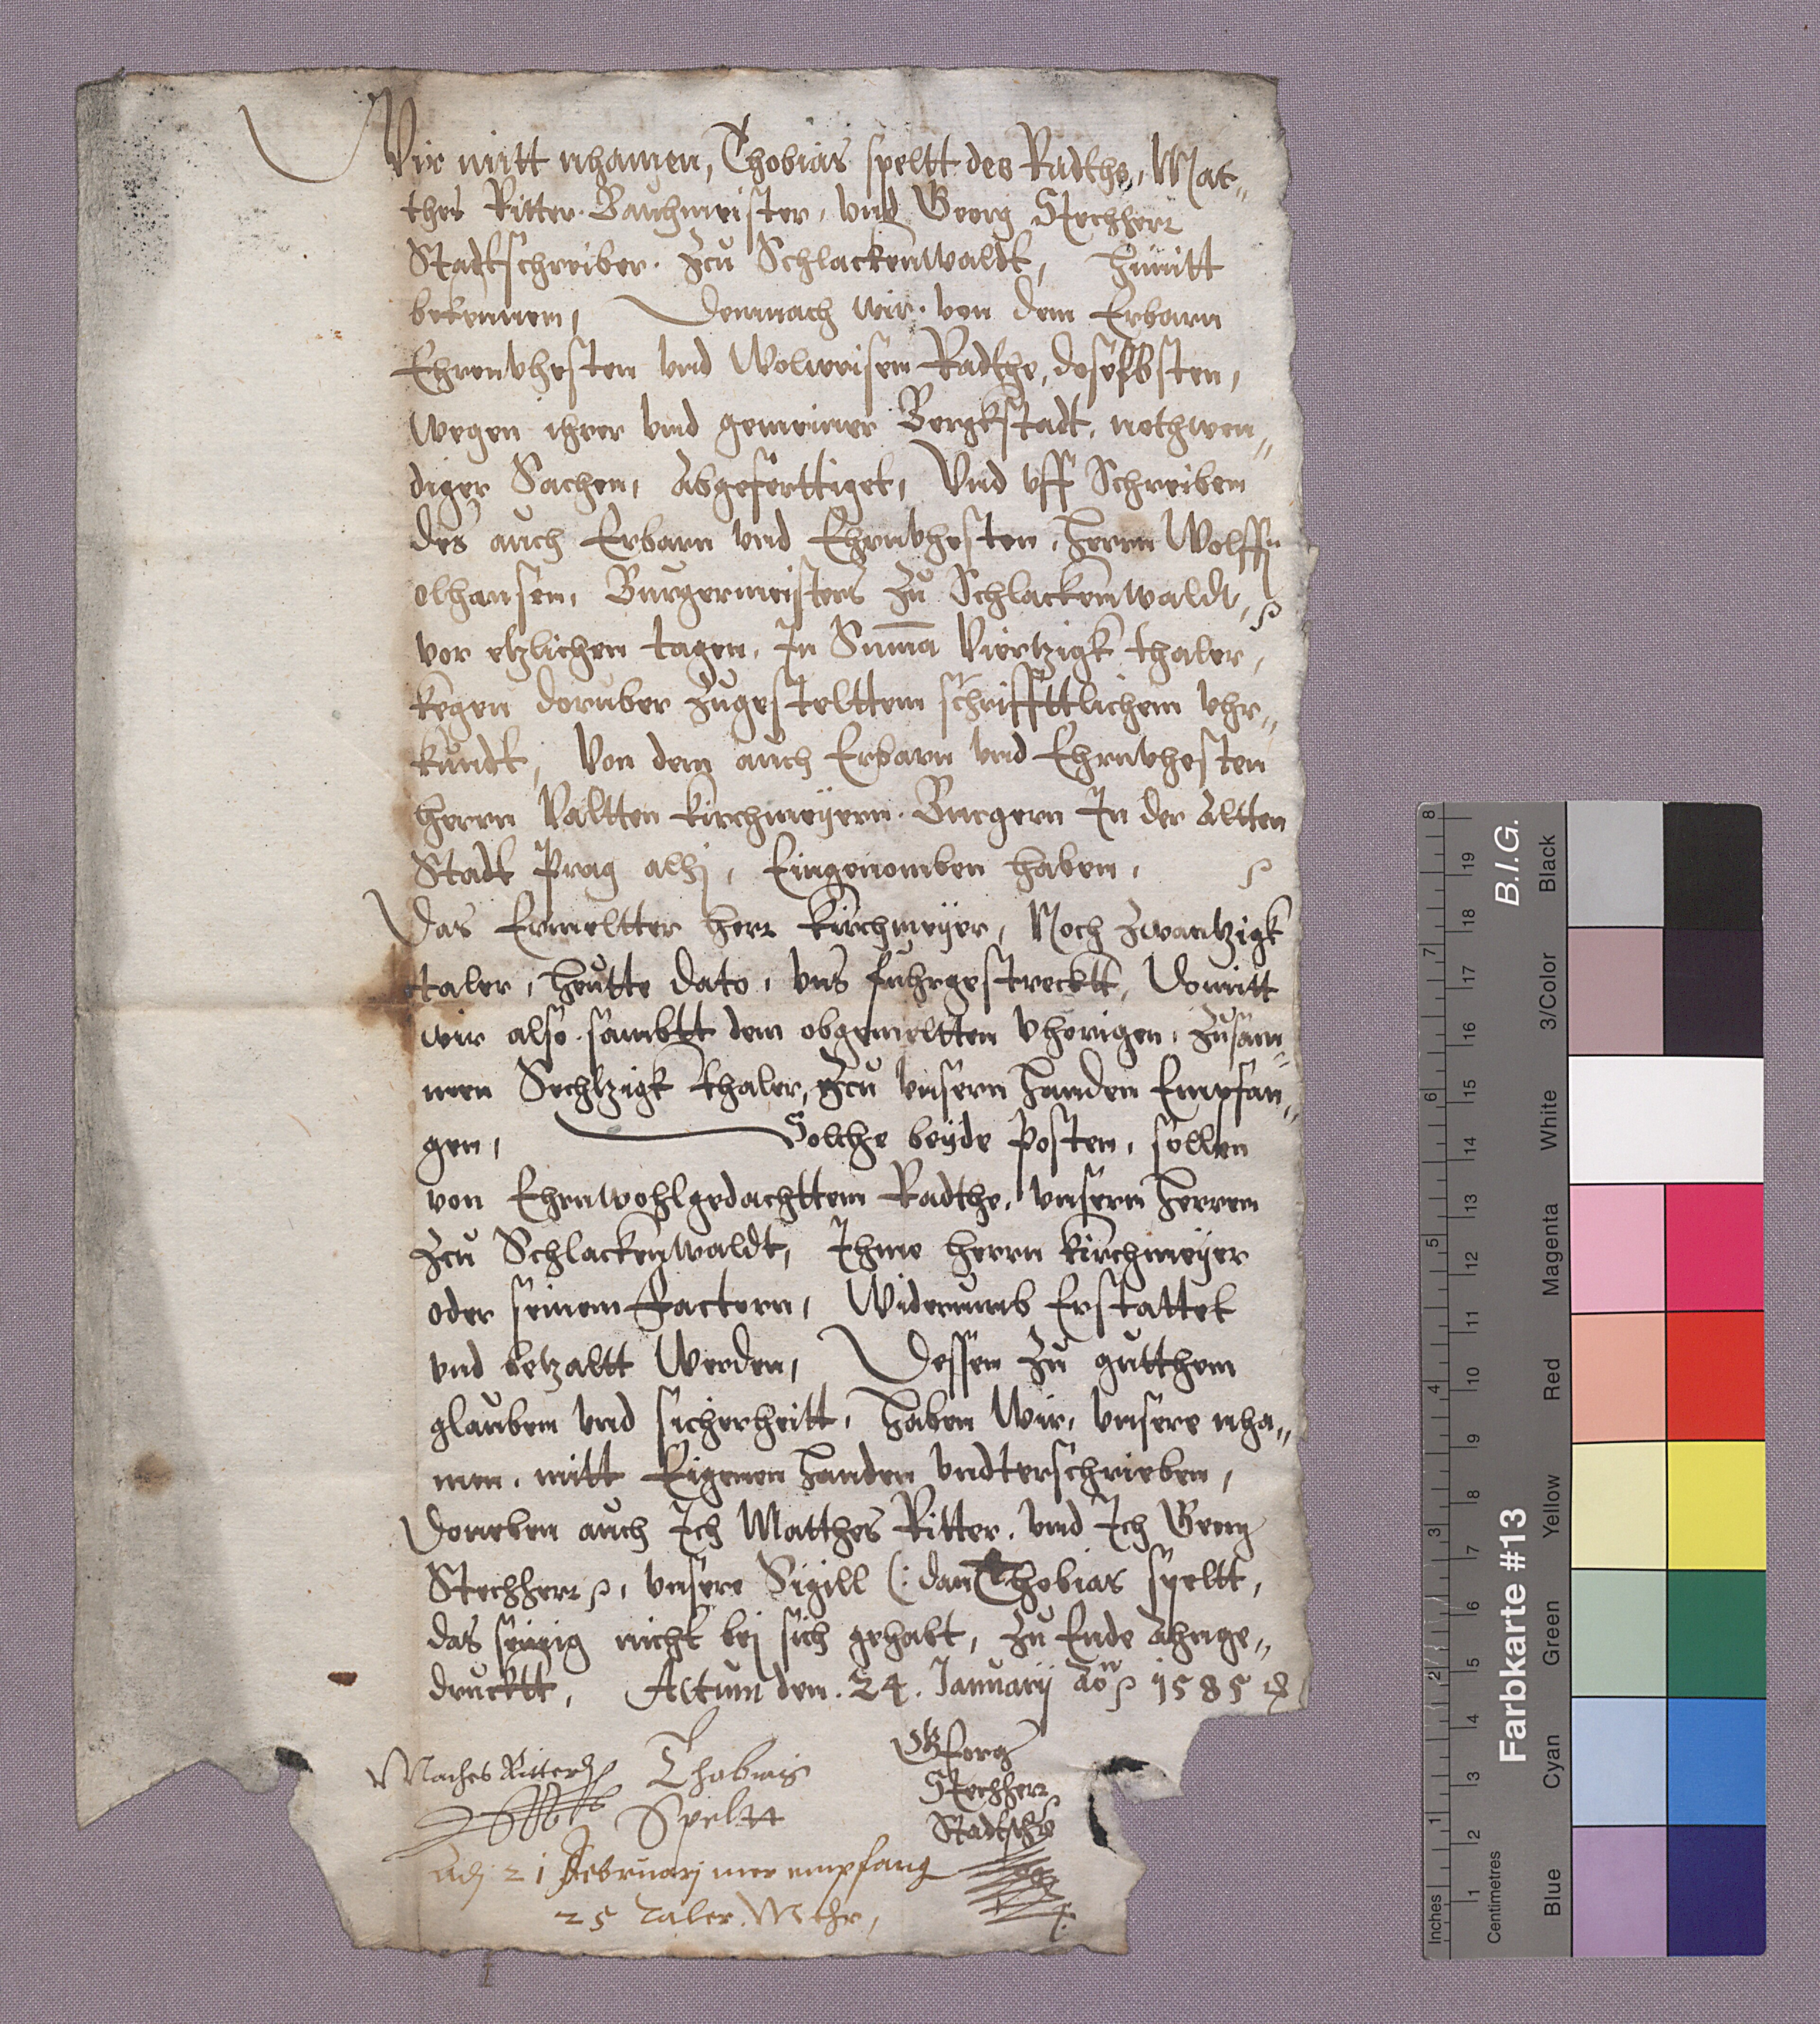 Wir mitt nhamen, Thobias speltt des Radths, Mat„
thes Ritter Bauhmeister, vnd Georg Stechherr
Stadtschreiber Zcu Schlackenwaldt, hirmitt
bekennen, Demnach wir von dem Erbarn
Ehrenvhesten vnd Wolweisen Radthe, doselbsten,
wegen ihrer vnd gemeiner Bergkstadt, nothwen„
diger Sachen, Abgeferttiget, Vnd vff Schreiben
des auch Erbarn vnd Ehrnvhesten, Herrn Wolff„
olhansen, Burgermeisters Zu Schlackenwaldt,
vor etzlichen tagen, In Suma Viertzigk thaler,
kegen doruber Zugestelttem schriffttlichem vhr„
kundt, Von dem auch Erbarn vnd Ehrnvhesten
Herrn Valtten Kirchmeÿern Burgern In der Altten
Stadt Prag alhj, Eingenomben haben,
Das Ermeltter Herr Kirchmeÿer, Noch Zwantzigk
taler, Heutte dato, vns fuhrgestrecktt, Domitt
wir also sambtt dem obgemeltten vhorigen, Zusam„
men Sechtzigk thaler, Zcu vnsern Handen Empfan„
gen, Solche beÿde Posten, sollen
von Ehrnwohlgedachttem Radthe, vnsern Herren
Zcu Schlackenwaldt, Ihme Herrn Kirchmeÿer
oder seinem Factorn, Widerumb Erstattet
vnd betzaltt Werden, Dessen Zu gutthem
glauben vnd sicherheitt, Haben Wir, vnsere nha„
men, mitt Eigenen Handen vndterschrieben,
Doneben auch Ich Matthes Ritter, vnd Ich Georg
Stechherr, vnsere Sigill (: dan Thobias speltt,
das seinig nicht bej sich gehabt, Zu Ende Ahnge„
drucktt, Actum den. 24. Januarÿ Ao 1585
Maches Ritter Thobias Georg
Speltt Stechherr
Stadtsch
Adj 21 Februarj mer empfang
25 Taler. Mehr,
B.I.G.
Farbkarte #13
Inches 1 2 3 4 5 6 7 8
Centimetres 1 2 3 4 5 6 7 8 9 10 11 12 13 14 15 16 17 18 19
Blue Cyan Green Yellow Red Magenta White 3/Color Black